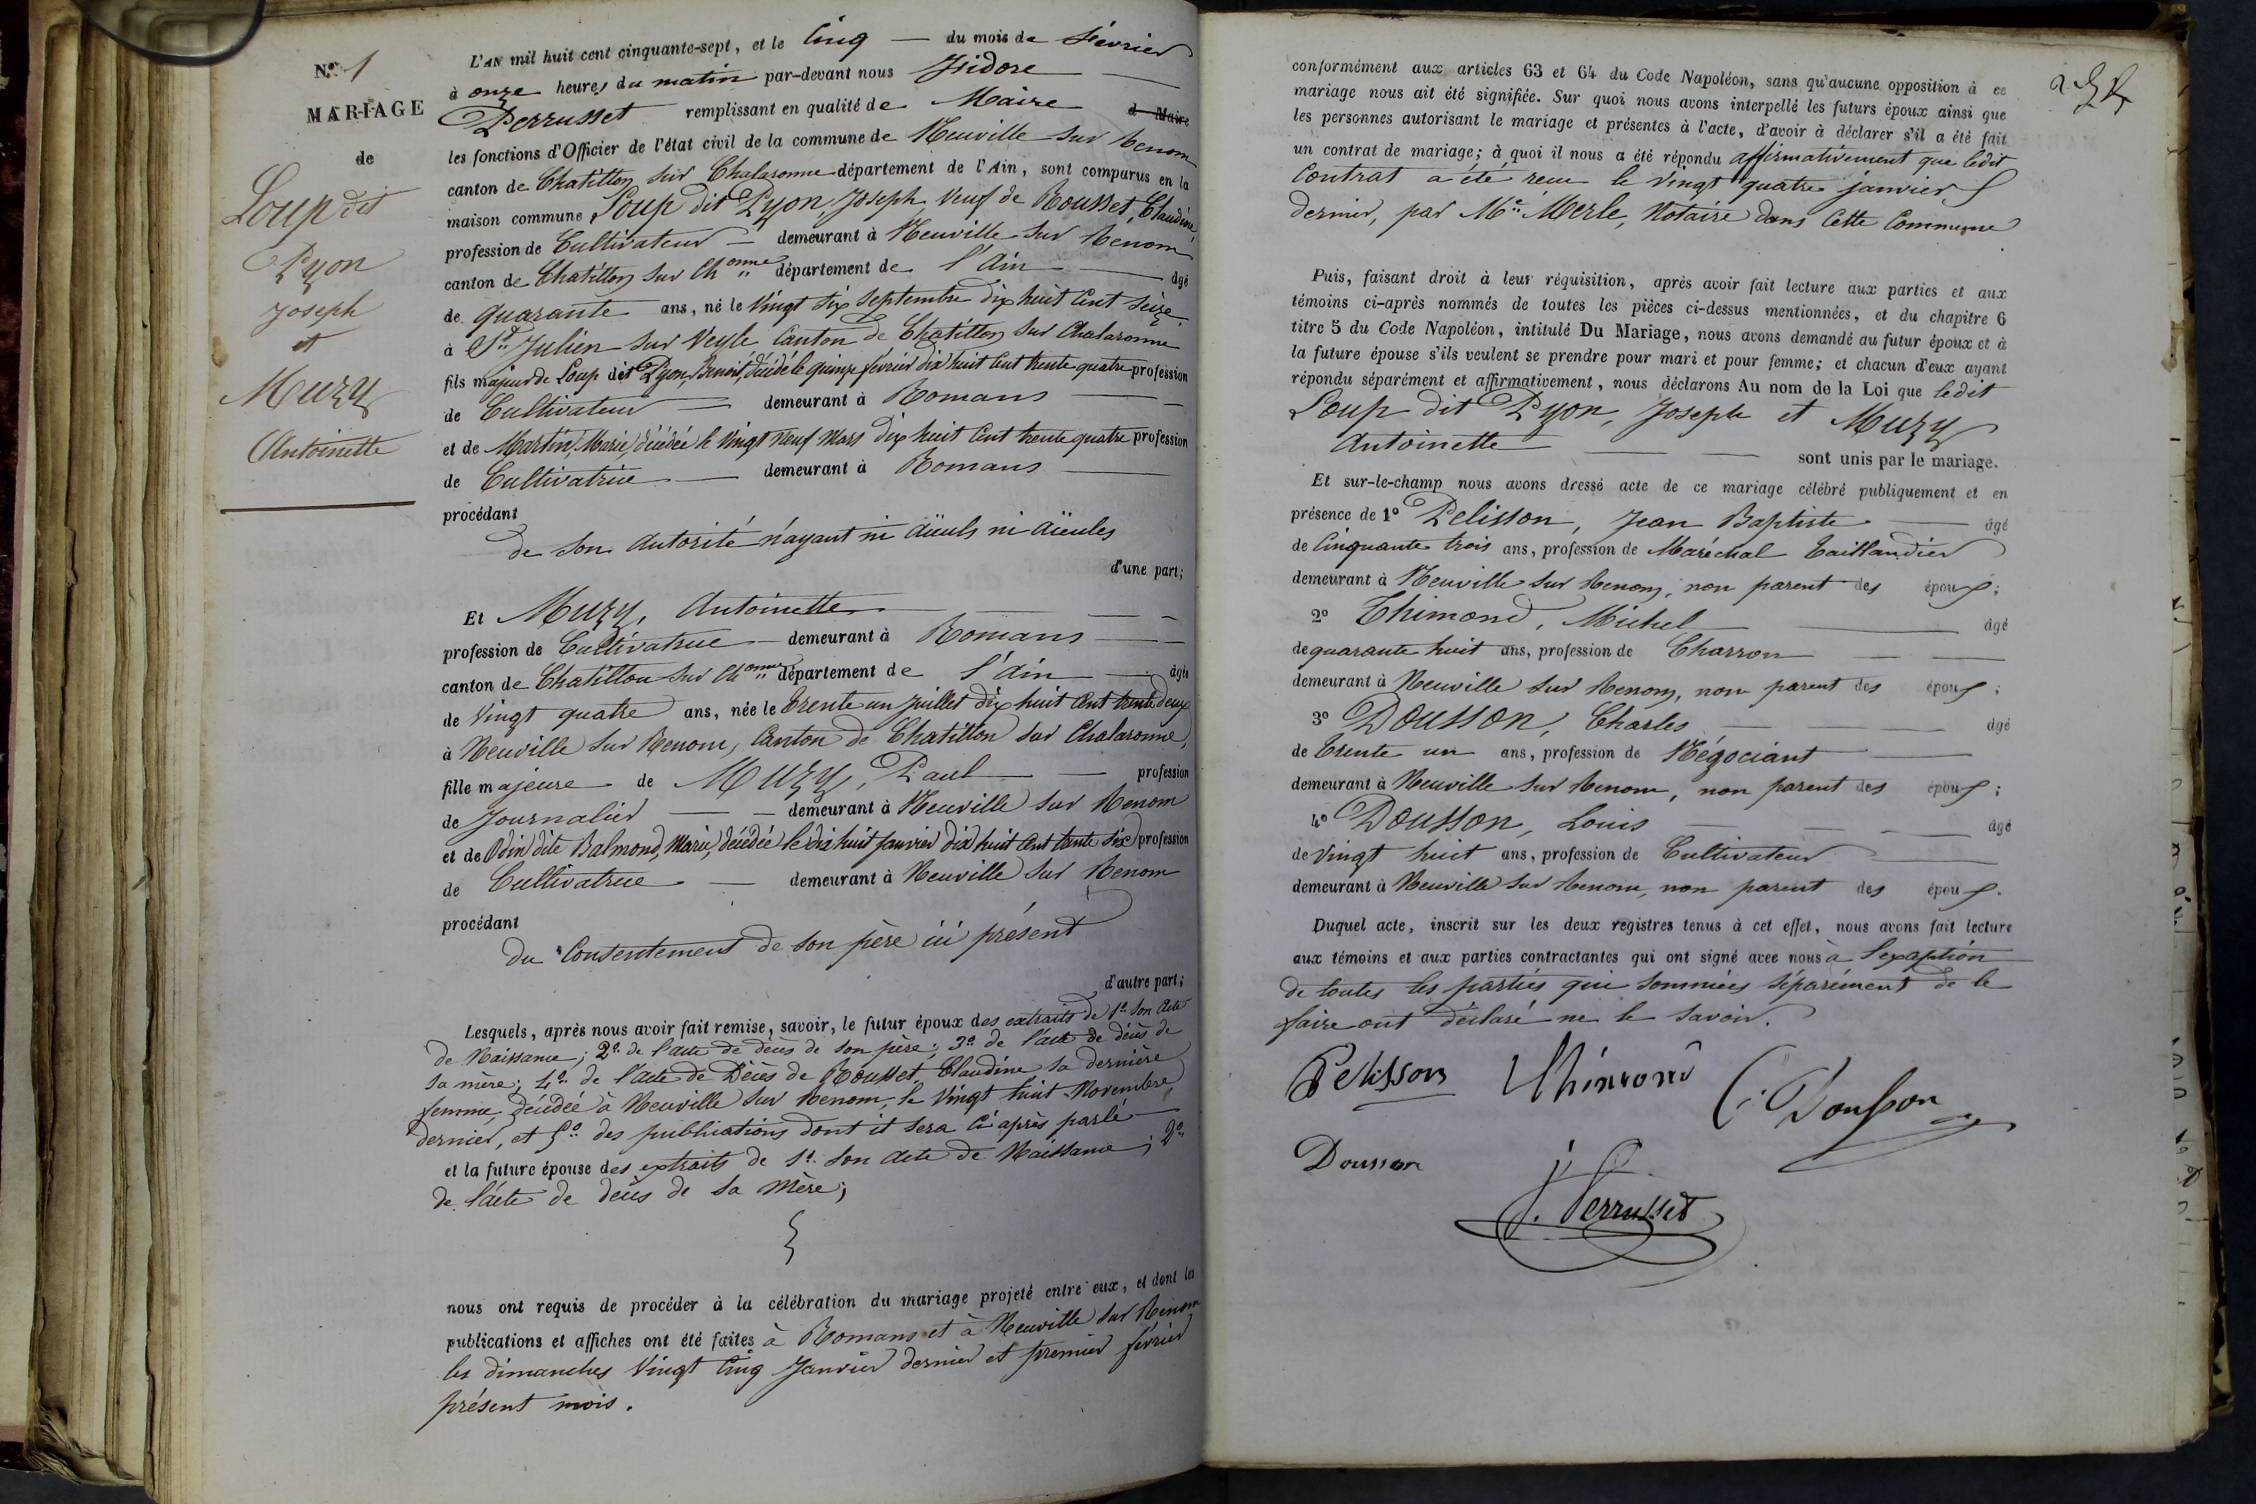 N.º 1
MARIAGE
de
Loup dit
Lyon
Joseph
et
Muzy
Antoinette
L'AN mil huit cent cinquante-sept, et le Cinq — du mois de février
à onze heures du matin par-devant nous Isidore —
Perrusset remplissant en qualité de Maire d Maire
les fonctions d'Officier de l'état civil de la commune de Neuville sur Renom
canton de Chatillon sur Chalaronne département de l'Ain, sont comparus en la
maison commune, Loup dit Lyon, Joseph veuf de Rousset, Claudine,
profession de Cultivateur — demeurant à Neuville sur Renom
canton de Chatillon sur Ch.onne département de l'Ain — âgé
de quarante ans, né le Vingt six Septembre dix huit Cent Seize
à St Julien sur Veyle Canton de Chatillon sur Chalaronne
fils majeur de Loup dit Lyon, Benoit, décédé le quinze février dix huit Cent trente quatre profession
de Cultivateur — demeurant à Romans —
et de Martin, Marie, décédée le Vingt neuf Mars dix huit Cent trente quatre profession
de Cultivatrice — demeurant à Romans —
procédant
de son autorité n'ayant ni aïeuls ni aïeules
d'une part;
Et Muzy, Antoinette —
profession de Cultivatrice — demeurant à Romans —
canton de Chatillon sur Ch.onne département de l'Ain — âgée
de Vingt quatre ans, née le Trente un juillet dix huit Cent trente deux
à Neuville sur Renom, Canton de Chatillon sur Chalaronne,
fille majeure de Muzy, Paul — profession
de Journalier — demeurant à Neuville sur Renom
et de Odin dite Balmond, Marie, décédée le dix huit Janvier dix huit Cent trente six profession
de Cultivatrice — demeurant à Neuville sur Renom
procédant
du Consentement de son père ici présent
d'autre part;
Lesquels, après nous avoir fait remise, savoir, le futur époux des extraits de 1º son acte
de Naissance; 2º de l'acte de décès de son père; 3º de l'acte de décès de
sa mère; 4º de l'acte de Décès de Rousset, Claudine sa dernière
femme, décédée à Neuville sur Renom, le Vingt huit Novembre
dernier, et 5º des publications dont il sera ci après parlé —
et la future épouse des extraits de 1º son acte de Naissance; 2º
de l'acte de décès de sa mère;
nous ont requis de procéder à la célébration du mariage projeté entre eux, et dont les
publications et affiches ont été faites à Romans et à Neuville sur Renom
les dimanches Vingt Cinq Janvier dernier et premier février
présent mois.
conformément aux articles 63 et 64 du Code Napoléon, sans qu'aucune opposition à ce
mariage nous ait été signifiée. Sur quoi nous avons interpellé les futurs époux ainsi que
les personnes autorisant le mariage et présentes à l'acte, d'avoir à déclarer s'il a été fait
un contrat de mariage; à quoi il nous a été répondu affirmativement que ledit
Contrat a été reçu le Vingt quatre janvier
dernier, par Me Merle, Notaire dans Cette Commune
Puis, faisant droit à leur réquisition, après avoir fait lecture aux parties et aux
témoins ci-après nommés de toutes les pièces ci-dessus mentionnées, et du chapitre 6
titre 5 du Code Napoléon, intitulé Du Mariage, nous avons demandé au futur époux et à
la future épouse s'ils veulent se prendre pour mari et pour femme; et chacun d'eux ayant
répondu séparément et affirmativement, nous déclarons Au nom de la Loi que ledit
Loup dit Lyon, Joseph et Muzy
Antoinette — sont unis par le mariage.
Et sur-le-champ nous avons dressé acte de ce mariage célébré publiquement et en
présence de 1º Pelisson, Jean Baptiste — âgé
de Cinquante trois ans, profession de Maréchal Taillandier
demeurant à Neuville sur Renom, non parent des époux;
2º Thimond, Michel — âgé
de quarante huit ans, profession de Charron —
demeurant à Neuville sur Renom, non parent des époux;
3º Dousson, Charles — âgé
de Trente un ans, profession de Négociant —
demeurant à Neuville sur Renom, non parent des époux;
4º Dousson, Louis — âgé
de Vingt huit ans, profession de Cultivateur —
demeurant à Neuville sur Renom, non parent des époux.
Duquel acte, inscrit sur les deux registres tenus à cet effet, nous avons fait lecture
aux témoins et aux parties contractantes qui ont signé avec nous à l'exception
de toutes les parties qui sommées séparément de le
faire ont déclaré ne le savoir.
Pelisson Thimond C. Dousson
Dousson
J. Perrusset